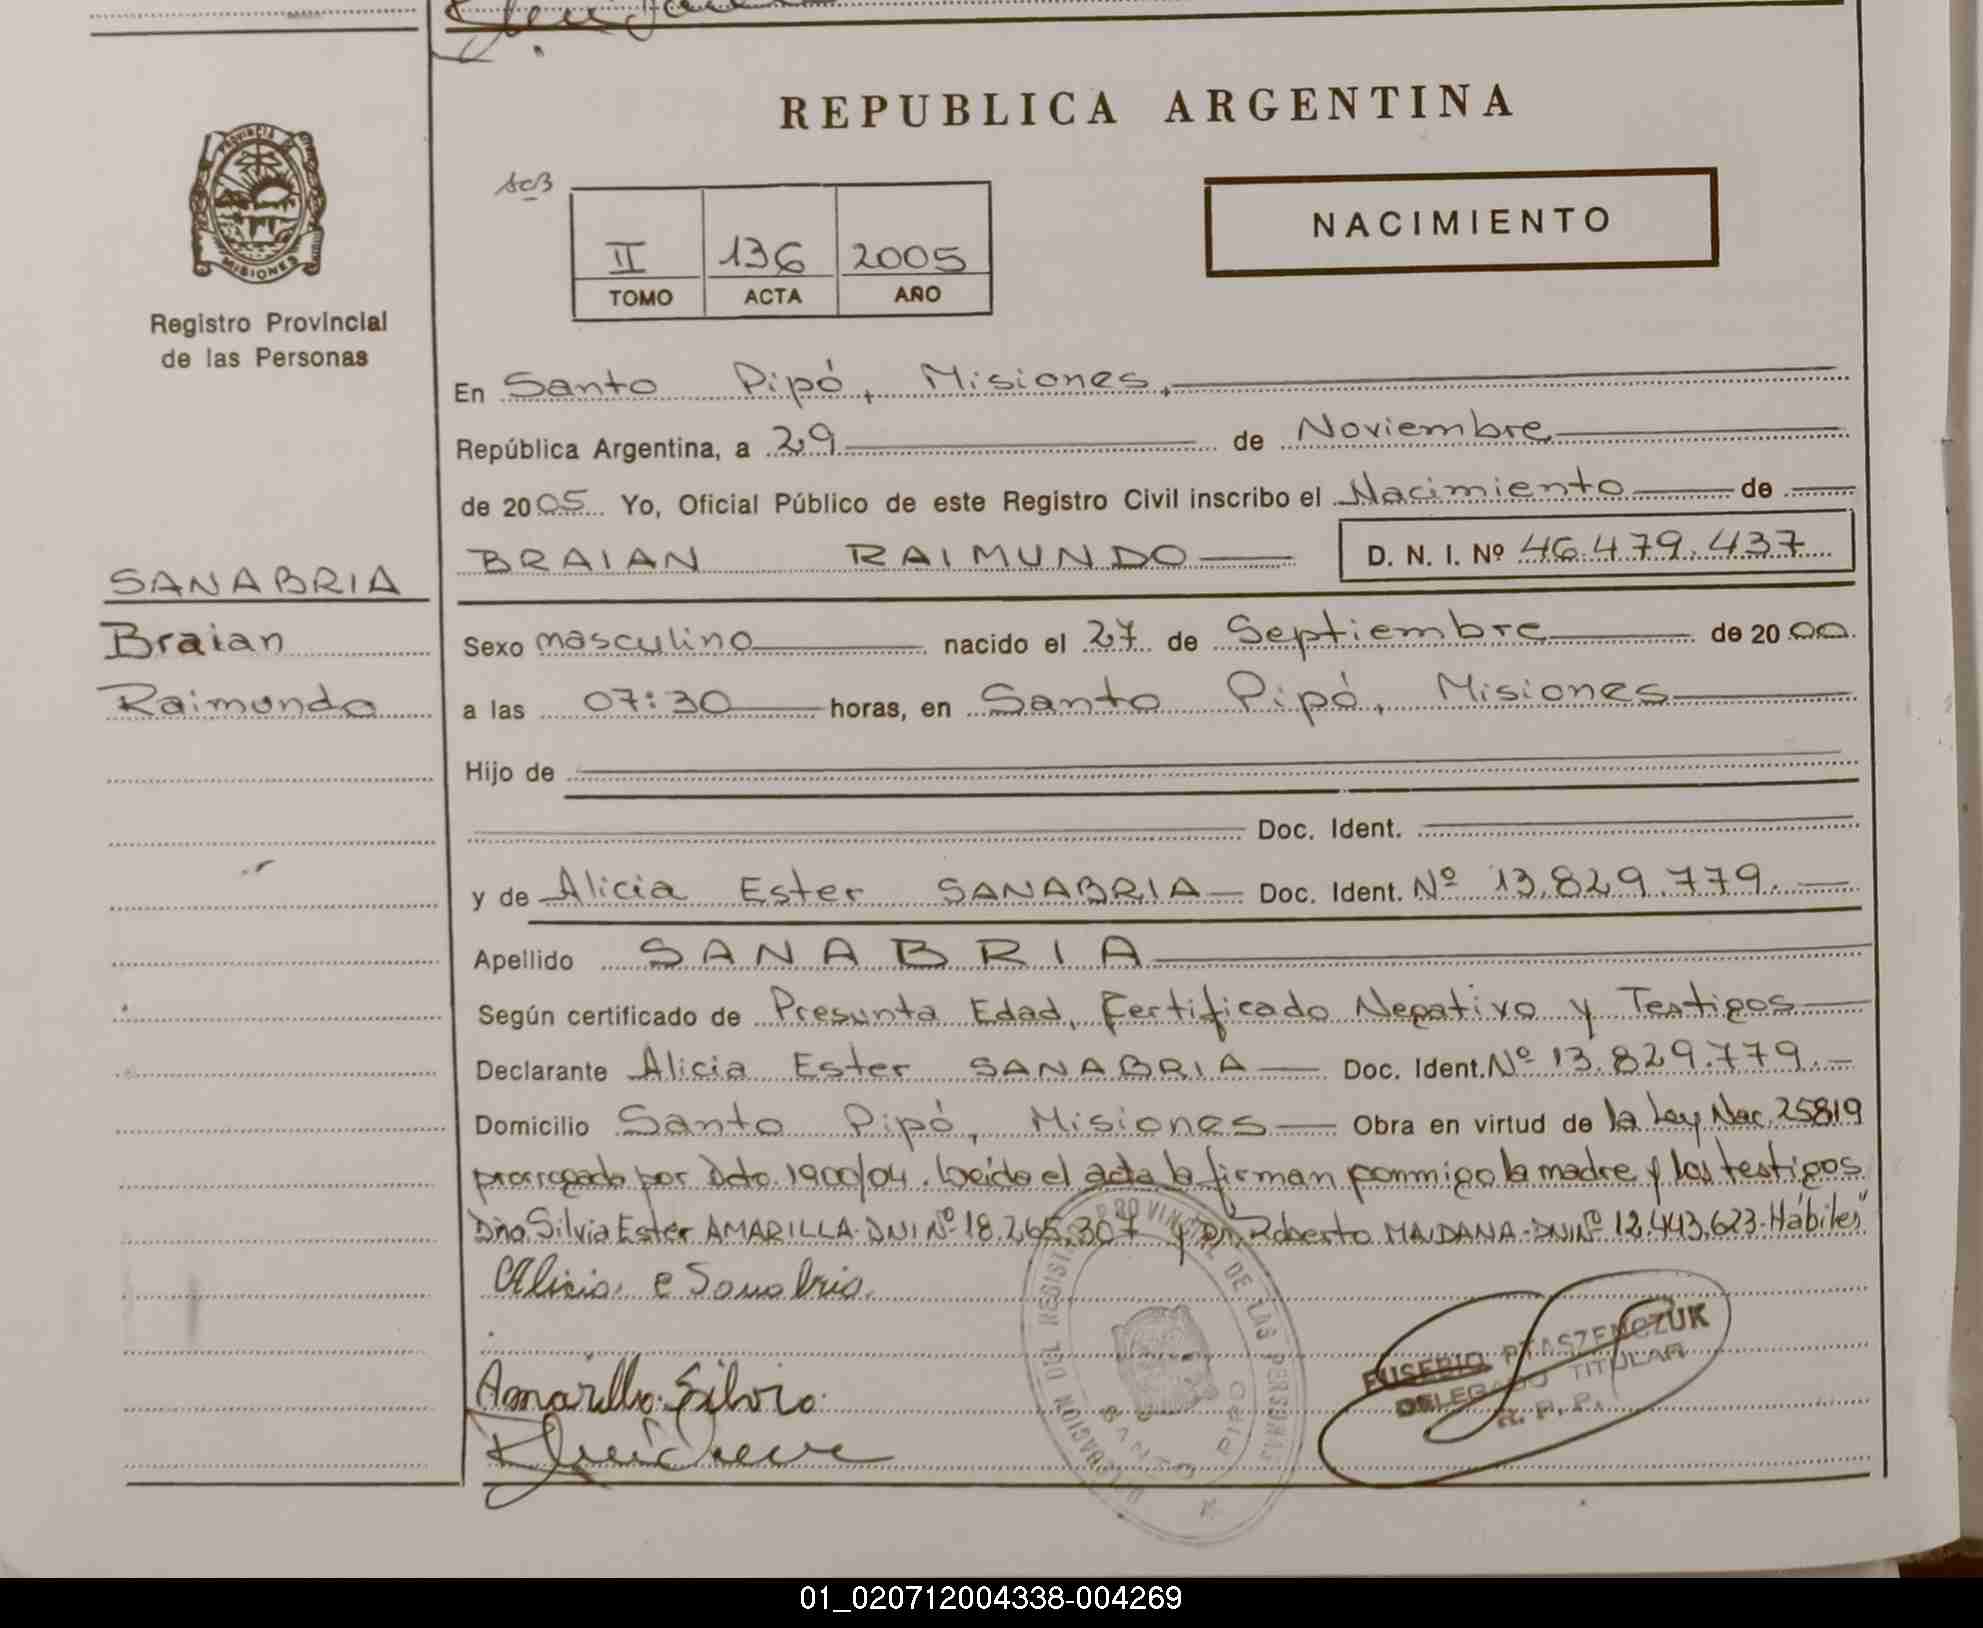 REPUBLICA ARGENTINA
PROVINCIA DE
MISIONES
Registro Provincial
de las Personas
II 136 2005
TOMO ACTA AÑO
NACIMIENTO
En Santo Pipó, Misiones,
República Argentina, a 29 de Noviembre
de 2005 Yo, Oficial Público de este Registro Civil inscribo el Nacimiento de
BRAIAN RAIMUNDO D. N. I. Nº 46.479.437
SANABRIA
Braian
Raimundo
Sexo masculino nacido el 27 de Septiembre de 2000
a las 07:30 horas, en Santo Pipó, Misiones
Hijo de
Doc. Ident.
y de Alicia Ester SANABRIA Doc. Ident. Nº 13.829.779.
Apellido SANABRIA
Según certificado de Presunta Edad, Certificado Negativo y Testigos
Declarante Alicia Ester SANABRIA Doc. Ident. Nº 13.829.779.
Domicilio Santo Pipó, Misiones Obra en virtud de la Ley Nac. 25819
prorrogado por Dcto. 1900/04. Leido el acta la firman conmigo la madre y los testigos
Dña. Silvia Ester AMARILLA-DNI Nº 18.265.307 y Dn. Roberto MAIDANA-DNI Nº 12.443.623-Hábiles"
Alicia e Sanabria
Amarilla Silvia
DELEGACION DEL REGISTRO PROVINCIAL DE LAS PERSONAS
SANTO PIPO
EUSEBIO PTASZENCZUK
DELEGADO TITULAR
R. P. P.
01_020712004338-004269